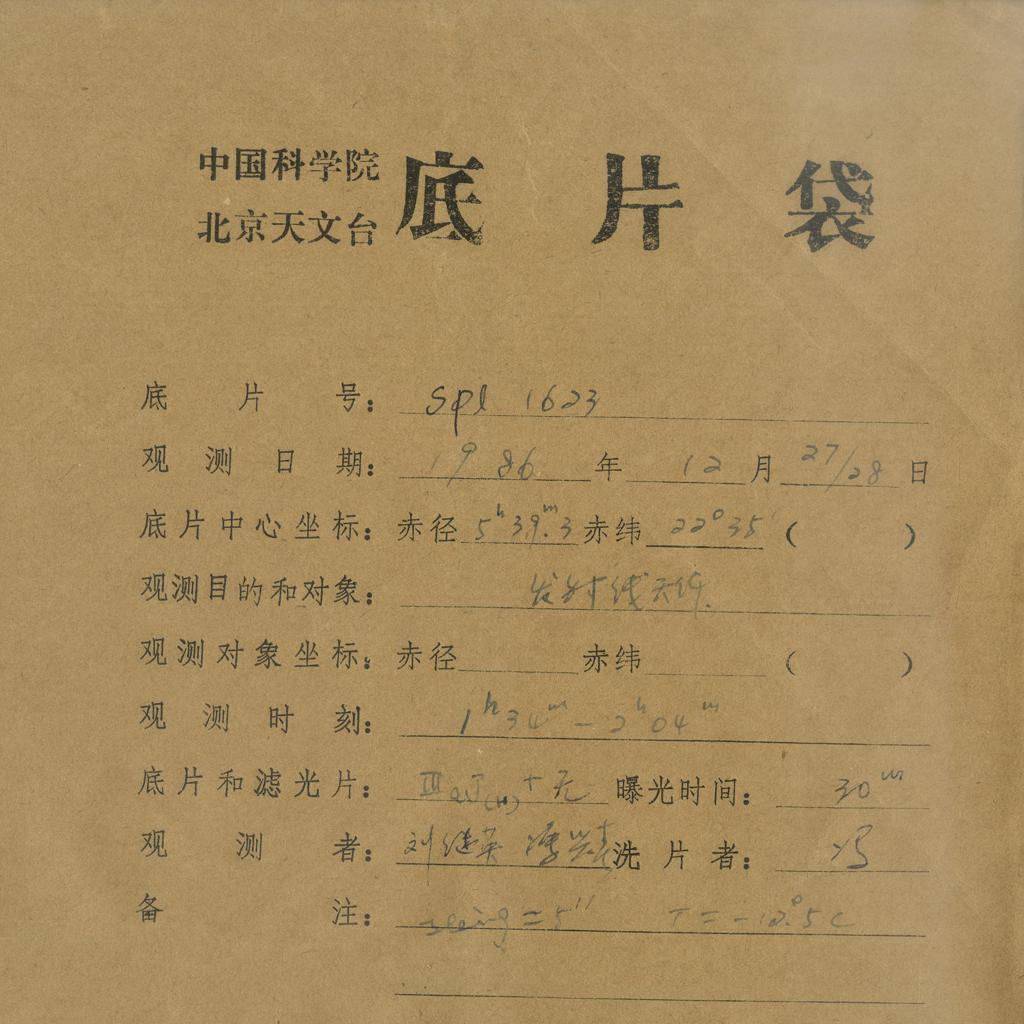 中国科学院
北京天文台
底片袋
底片号: Spl 1623
观测日期: 1986 年 12 月 27/28 日
底片中心坐标: 赤径 5ʰ39ᵐ.3 赤纬 22°35 ( )
观测目的和对象: 发射线天体
观测对象坐标: 赤径 赤纬 ( )
观测时刻: 1ʰ34ᵐ - 2ʰ04ᵐ
底片和滤光片: IIIaJ(H) + 无 曝光时间: 30ᵐ
观测者: 刘继英 洗片者: 冯
备注: seeing = 5" T = -12°.5 C